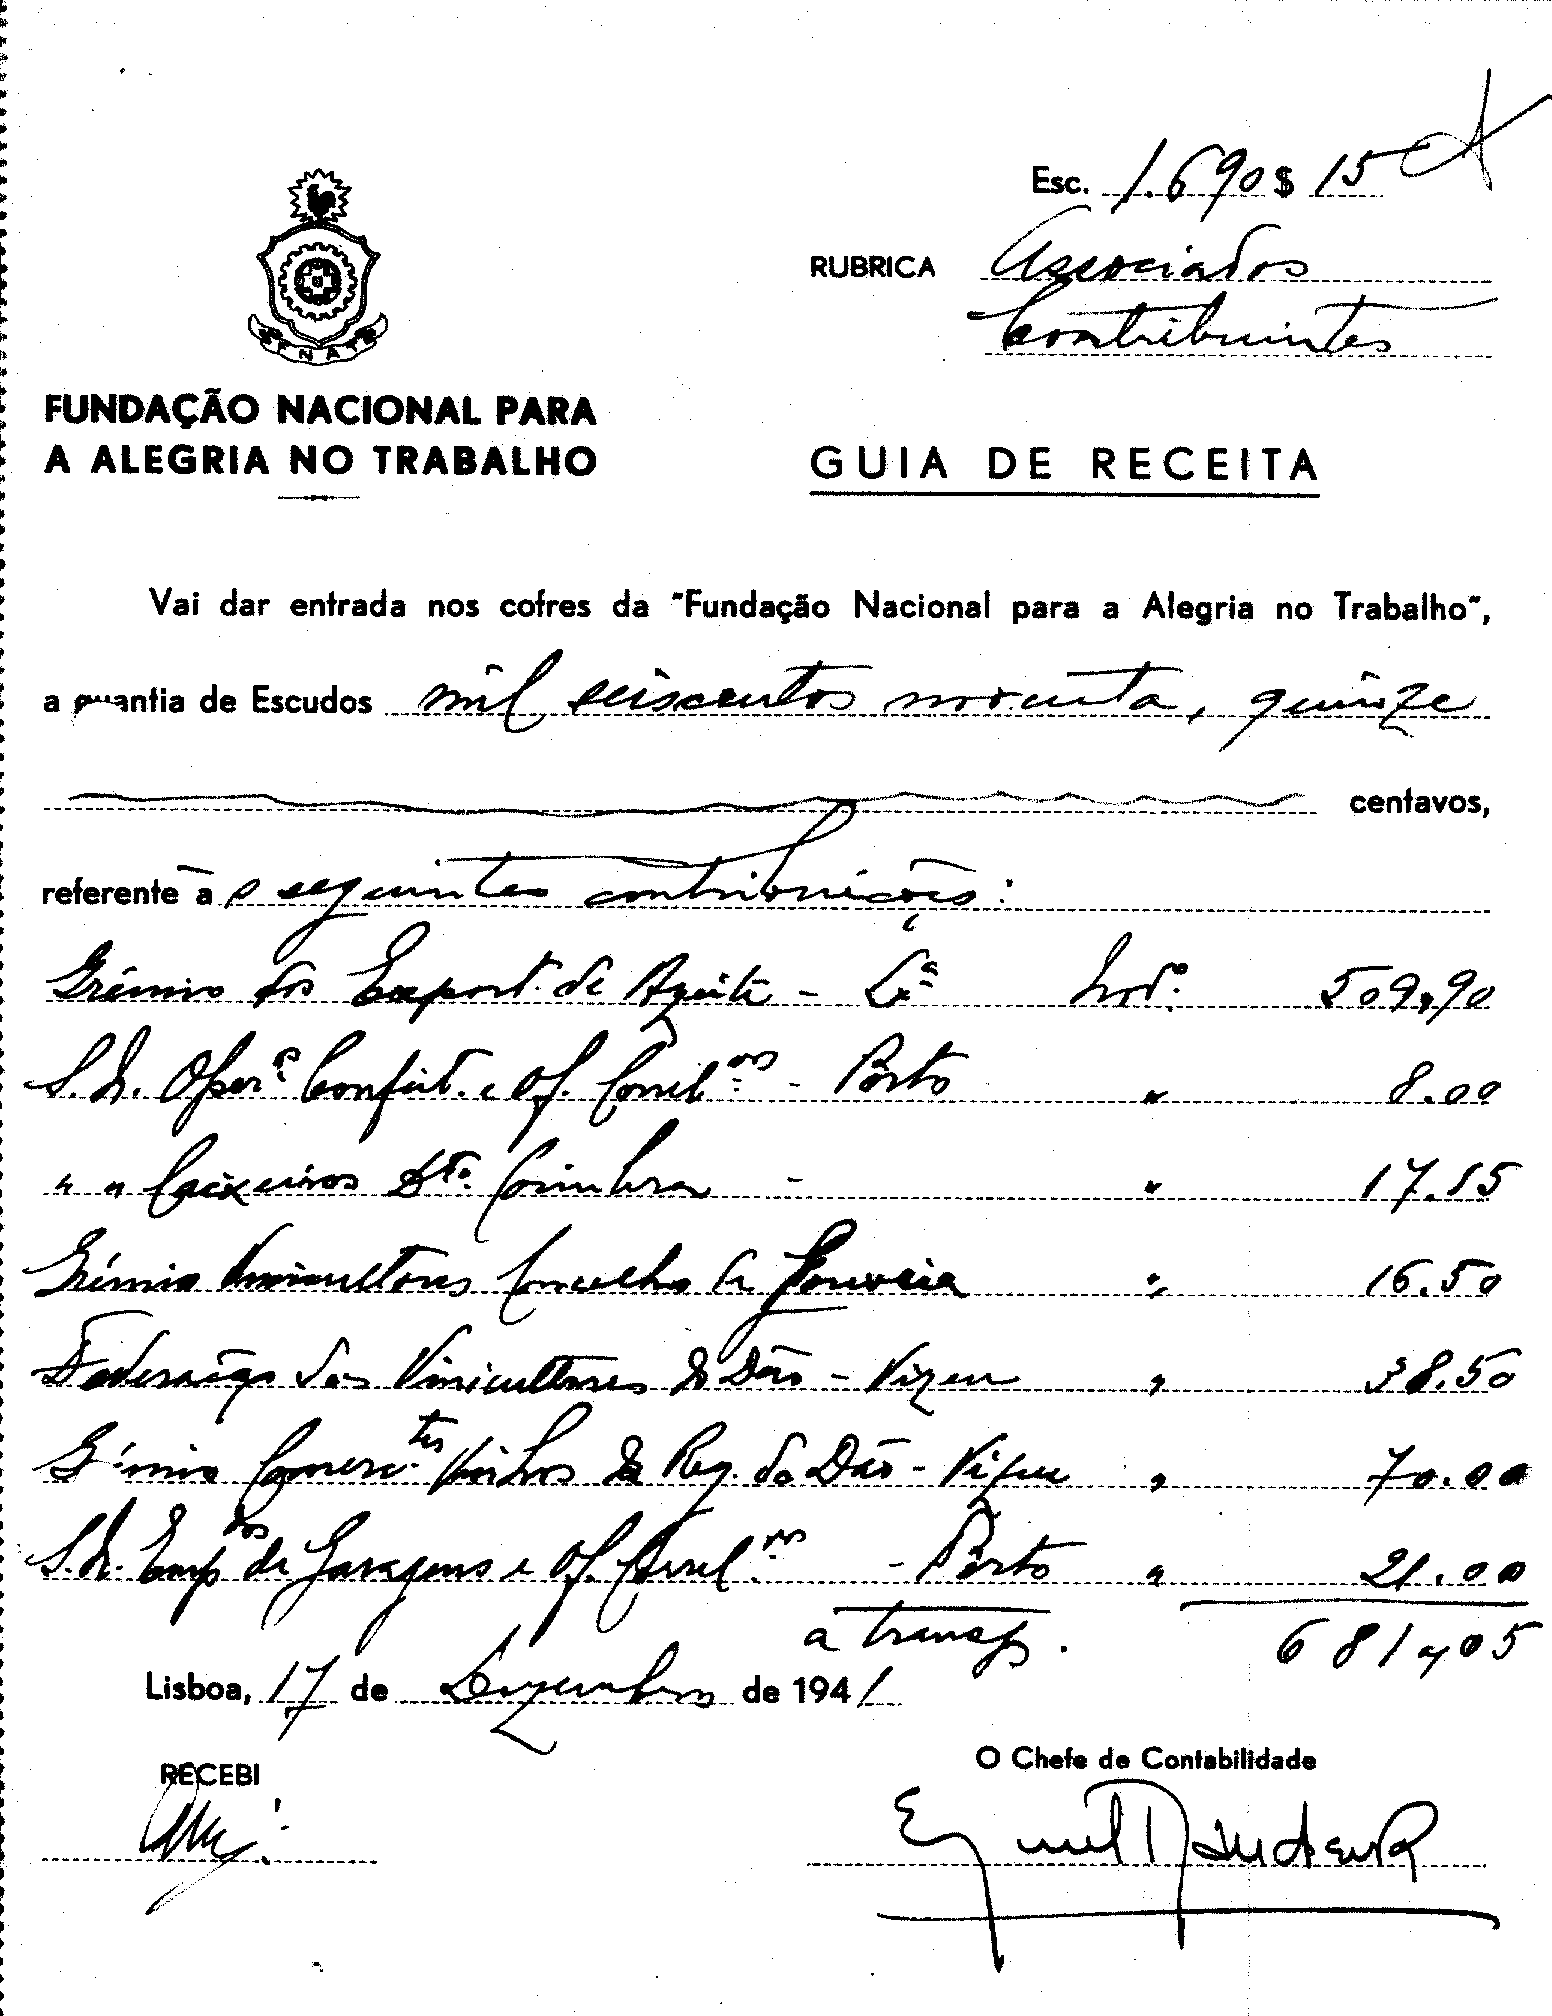 Esc. 1.690 $ 15
RUBRICA Associados
Contribuintes
FENAT
FUNDAÇÃO NACIONAL PARA
A ALEGRIA NO TRABALHO
GUIA DE RECEITA
Vai dar entrada nos cofres da "Fundação Nacional para a Alegria no Trabalho",
a quantia de Escudos mil seiscentos noventa, quinze
centavos,
referente à s seguintes contribuições:
Grémio dos Export. de Azeite - Lxª 509,90
S.N. Oper.ºs Construt. e Of. Correl.os - Porto " 8.00
" " Caixeiros Dto. Coimbra - " 17.15
Grémio Vinicultores Concelho de Gouveia " 16.50
Federação dos Vinicultores do Dão - Vizeu " 38.50
Grémio Comerc.tes Vinhos da Reg. do Dão - Vizeu " 70.00
S.N. Empdos de Garagens e Of. Correl.as - Porto " 21.00
a transp. 681,05
Lisboa, 17 de Dezembro de 1941
RECEBI
O Chefe de Contabilidade